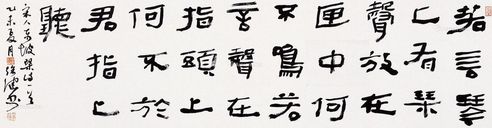 若言琴
上有琴
聲放在
匣中何
不鳴若
言聲在
指頭上
何不於
君指上
聽
宋人東坡琴詩一首
乙未夏月